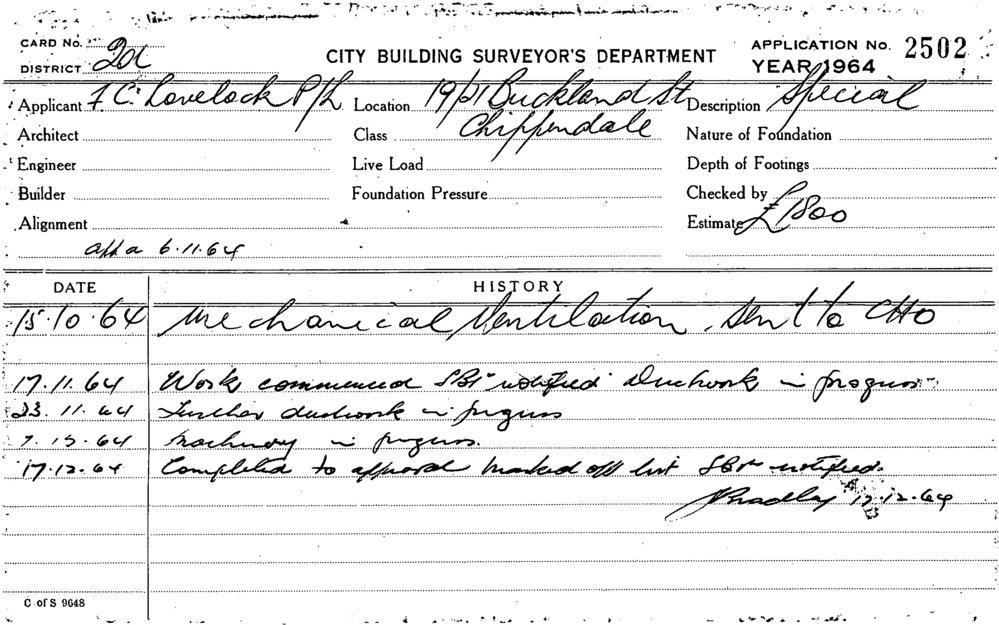 CARD No.
DISTRICT 20c
CITY BUILDING SURVEYOR'S DEPARTMENT
APPLICATION No. 2502
YEAR 1964
Applicant F. C. Lovelock P/L Location 19/21 Buckland St Description Special
Architect Class Chippendale Nature of Foundation
Engineer Live Load Depth of Footings
Builder Foundation Pressure Checked by
Alignment Estimate £1800
6.11.64
DATE HISTORY
15.10.64 Mechanical Ventilation sent to CHO
17.11.64 Work commenced notified Ductwork in progress
23.11.64 Further ductwork in progress
7.12.64 Machinery in progress.
17.12.64 Completed to approval marked off list notified.
Bradley 17.12.64
C of S 9648